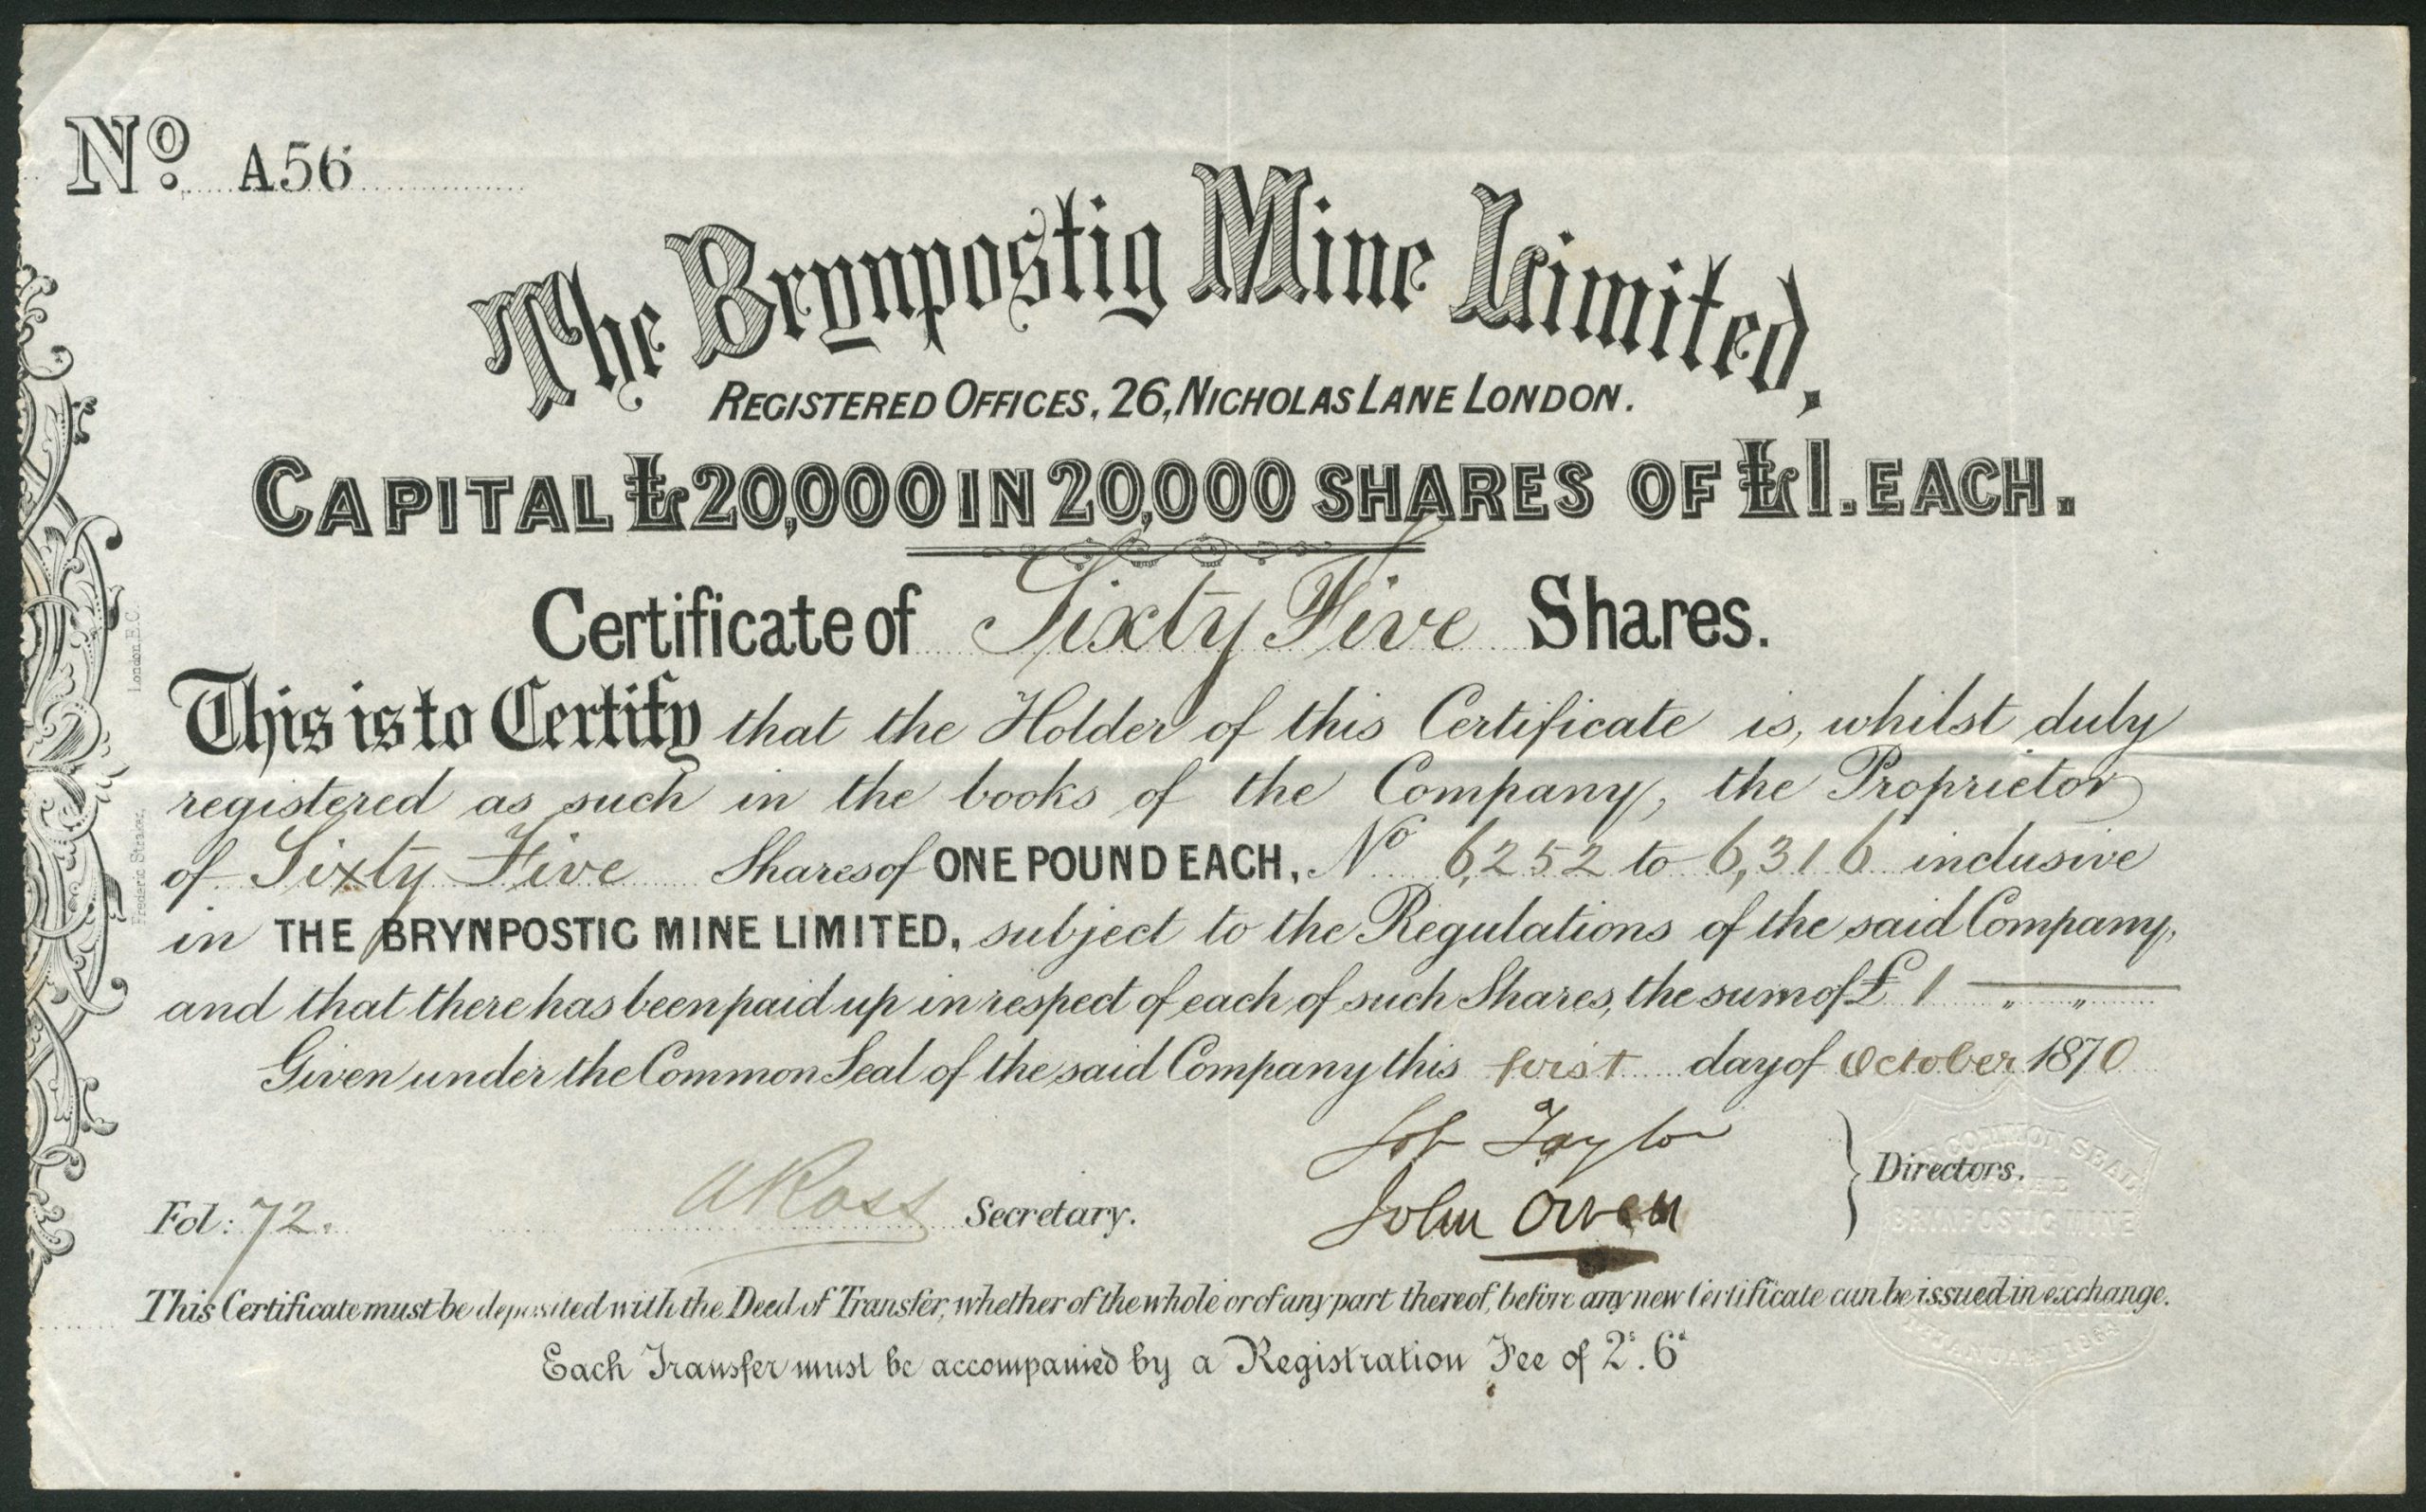 No. A56
The Brynpostig Mine Limited.
REGISTERED OFFICES, 26, NICHOLAS LANE LONDON.
CAPITAL £20,000 IN 20,000 SHARES OF £1. EACH.
Certificate of Sixty Five Shares.
This is to Certify that the Holder of this Certificate is, whilst duly
registered as such in the books of the Company, the Proprietor
of Sixty Five Shares of ONE POUND EACH, No 6,252 to 6,316 inclusive
in THE BRYNPOSTIG MINE LIMITED, subject to the Regulations of the said Company,
and that there has been paid up in respect of each of such Shares, the sum of £ 1 " "
Given under the Common Seal of the said Company this first day of October 1870
Job Taylor
John Owen
Directors.
Fol: 72.
A Ross Secretary.
This Certificate must be deposited with the Deed of Transfer, whether of the whole or of any part thereof, before any new Certificate can be issued in exchange.
Each Transfer must be accompanied by a Registration Fee of 2s. 6d
Frederic Straker, London. E.C.
COMMON SEAL
OF THE
BRYNPOSTIG MINE
LIMITED